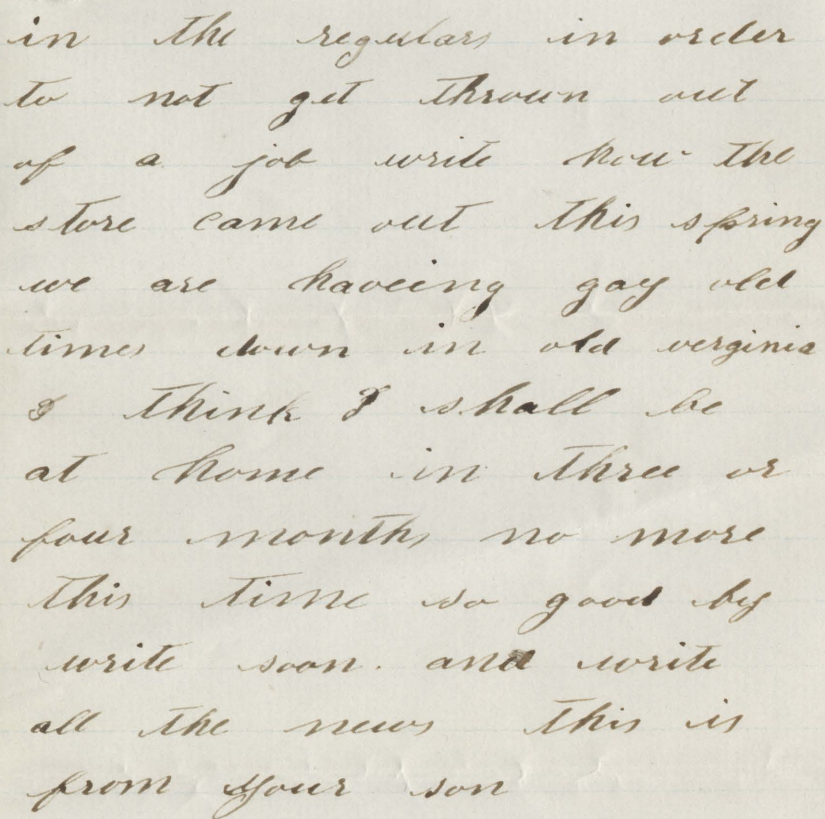 in the regulars in order
to not get thrown out
of a job write how the
store came out this spring
we are haveing gay old
times down in old verginia
I think I shall be
at home in three or
four months no more
this time so good by
write soon. and write
all the news this is
from your son